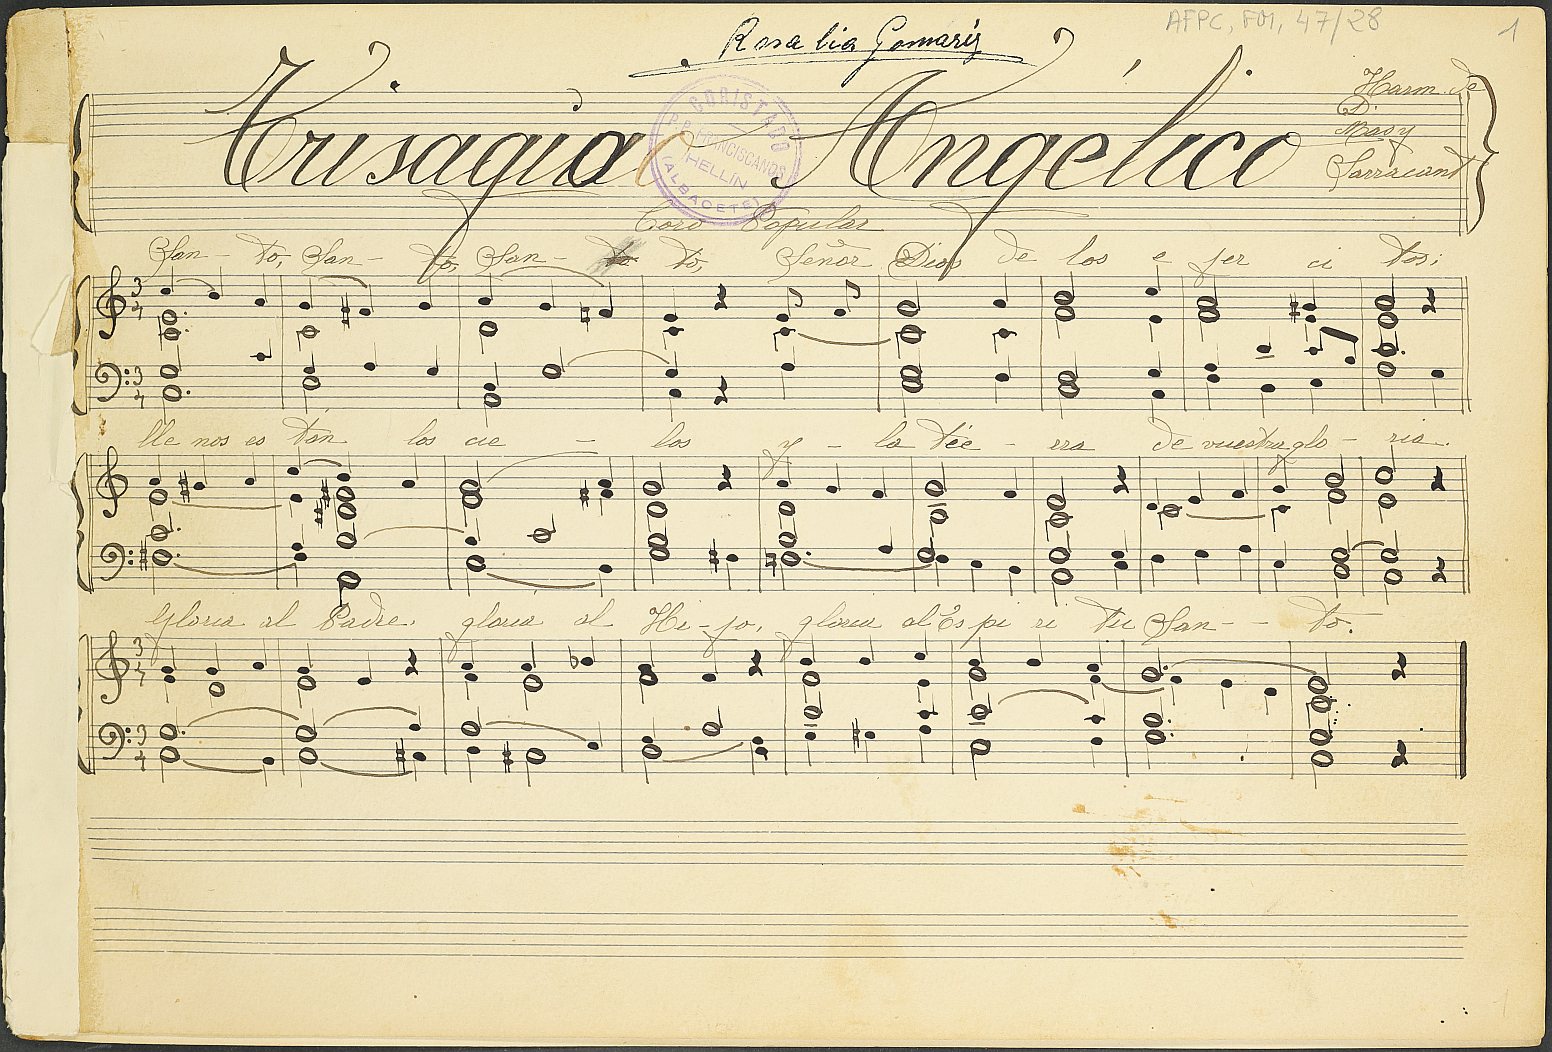 AFPC, FM, 47/28
1
Rosalia Gomariz
Trisagio Angélico
Harm. de
D.
Mas y
Sarracant
CORISTADO
P.P. FRANCISCANOS
HELLIN
(ALBACETE)
Coro Popular
San - to, San - to, San - to to, Señor Dios de los e jer ci tos;
lle nos es tán los cie - los y - la tie - rra de vuestra glo - ria.
Gloria al Padre. gloria al Hi - jo, gloria al Es pi ri tu San - - to.